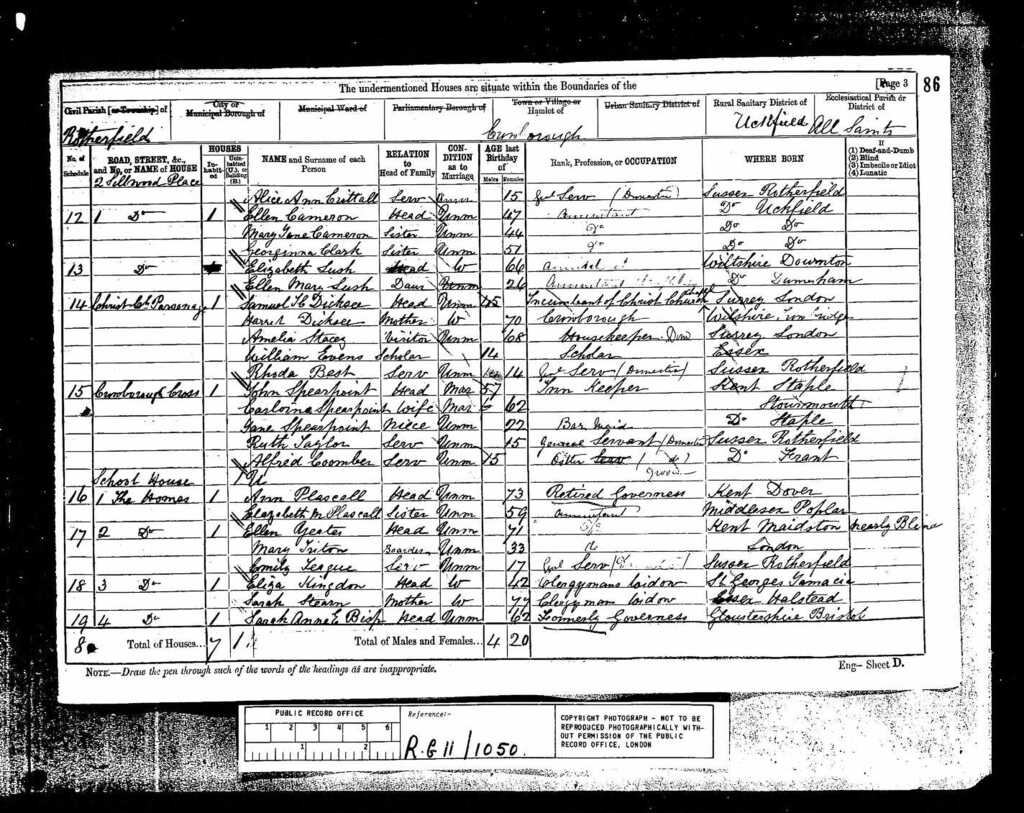 The undermentioned Houses are situate within the Boundaries of the
[Page 3
86
Civil Parish [or Township] of
City or Municipal Borough of
Municipal Ward of
Parliamentary Borough of
Town or Village or Hamlet of
Urban Sanitary District of
Rural Sanitary District of
Ecclesiastical Parish or District of
Rotherfield
Crowborough
Uckfield
All Saints
No. of Schedule
ROAD, STREET, &c., and No. or NAME of HOUSE
HOUSES
Inhabited
Uninhabited (U.), or Building (B.)
NAME and Surname of each Person
RELATION to Head of Family
CONDITION as to Marriage
AGE last Birthday of
Males
Females
Rank, Profession, or OCCUPATION
WHERE BORN
If
(1) Deaf-and-Dumb
(2) Blind
(3) Imbecile or Idiot
(4) Lunatic
2 Place
Alice Ann Crittall Serv 15 Serv (Domestic) Sussex Rotherfield
12 1 Do 1 Ellen Cameron Head Unm 47 Annuitant Do Uckfield
Mary Jane Cameron Sister Unm 44 Do Do Do
Georginna Clark Sister Unm 51 Do Do Do
13 Do Elizabeth Lush Head W 66 Wiltshire Downton
Ellen Mary Lush Daur Unm 26 Do
14 Christ Ch Parsonage 1 Samuel H Dicksee Head Unm Incumbent of Christ Church Surrey London
Harriet Dicksee Mother W 70 Crowborough Wilshire
Amelia Stacey Visitor Unm 68 Housekeeper Dom Surrey London
William Evens Scholar 14 Scholar Essex
Rhoda Best Serv Unm 14 Serv (Domestic) Sussex Rotherfield
15 Crowborough Cross 1 John Spearpoint Head Mar 57 Inn Keeper Kent Staple
Carloina Spearpoint Wife Mar 62 Stourmouth
Jane Spearpoint Niece Unm 22 Bar Maid Do Staple
Ruth Taylor Serv Unm 15 General Servant (Domestic) Sussex Rotherfield
Alfred Coomber Serv Unm 15 Serv Groom Do Frant
School House 1 U
16 1 The Homes 1 Ann Plascall Head Unm 73 Retired Governess Kent Dover
Elizabeth M Plascall Sister Unm 59 Annuitant Middlesex Poplar
17 2 Do 1 Ellen Yeates Head Unm 71 Do Kent Maidston nearly Blind
Mary Triton Boarder Unm 33 London
Emily Teague Serv Unm 17 Serv Sussex Rotherfield
18 3 Do 1 Eliza Kingdon Head W 42 Clergymans Widow St Georges Jamacia
Sarah Stearn Mother W 77 Clergymans Widow Essex Halstead
19 4 Do 1 Sarah Anne E Head Unm 62 Formerly Governess Gloustershire Bristol
8 Total of Houses... 7 1 Total of Males and Females... 4 20
NOTE.—Draw the pen through such of the words of the headings as are inappropriate.
Eng— Sheet D.
PUBLIC RECORD OFFICE
1 2 3 4 5 6
1 2
Reference:-
R.G 11/1050.
COPYRIGHT PHOTOGRAPH - NOT TO BE
REPRODUCED PHOTOGRAPHICALLY WITH-
OUT PERMISSION OF THE PUBLIC
RECORD OFFICE, LONDON